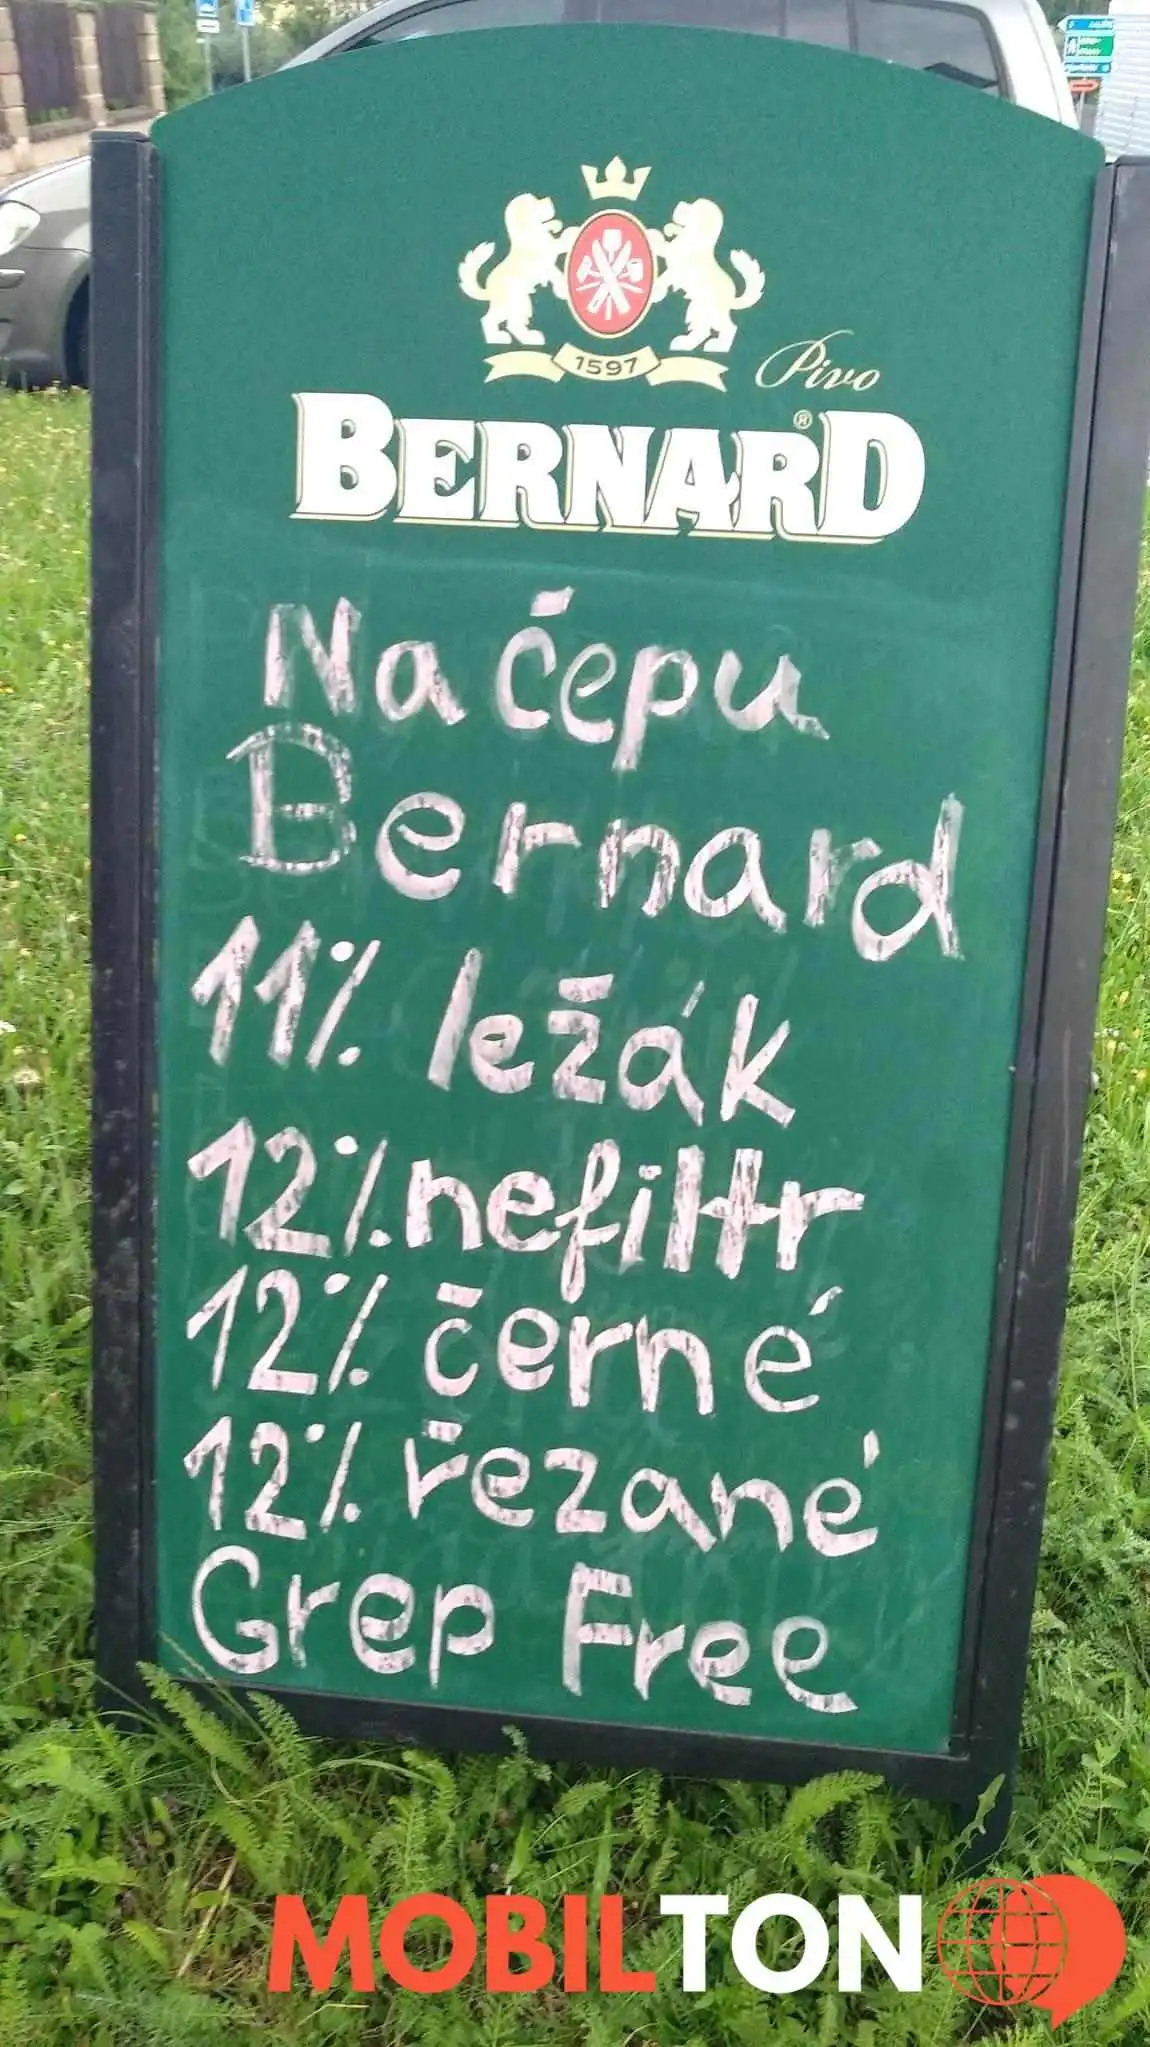 1597
Pivo
BERNARD®
Na čepu
Bernard
11% ležák
12% nefiltr
12% černé
12% řezané
Grep Free
MOBILTON